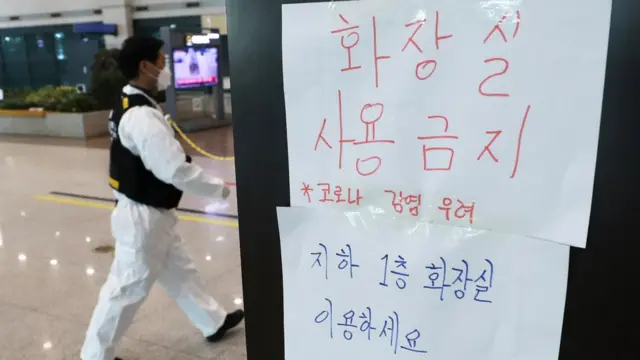 화장실
사용금지
*코로나 감염 우려
지하 1층 화장실
이용하세요